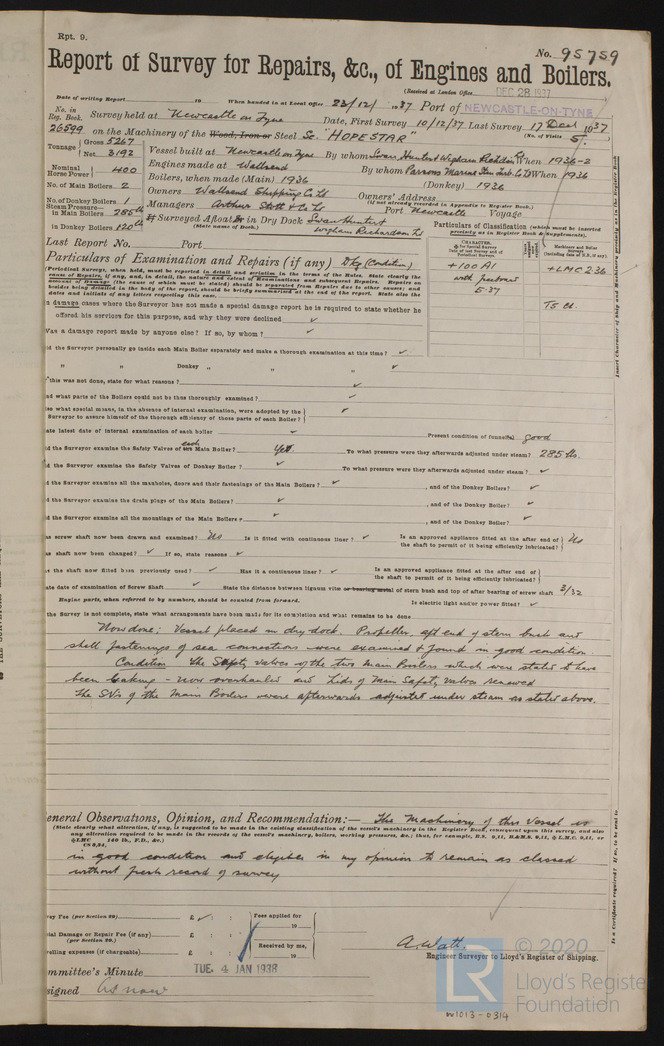 Rpt. 9.
No. 95759
Report of Survey for Repairs, &c., of Engines and Boilers.
(Received at London Office DEC 28 1937
Date of writing Report 19 When handed in at Local Office 23/12/ 1937 Port of NEWCASTLE-ON-TYNE
No. in Reg. Book. Survey held at Newcastle on Tyne Date, First Survey 10/12/37 Last Survey 17 Dec 1937
26599 on the Machinery of the Wood, Iron or Steel Sc "HOPESTAR" (No. of Visits 5.
Tonnage Gross 5267
Net 3192
Vessel built at Newcastle on Tyne By whom Swan Hunter & Wigham Richardson Ld When 1936-2
Nominal Horse Power 400
Engines made at Wallsend By whom Parsons Marine Stm Turb. Co Ld When 1936
No. of Main Boilers 2
Boilers, when made (Main) 1936 (Donkey) 1936
No. of Donkey Boilers 1
Owners Wallsend Shipping Co Ld Owners' Address
(If not already recorded in Appendix to Register Book.)
Steam Pressure— in Main Boilers 285 lb
Managers Arthur Stott & Co Ld Port Newcastle Voyage
in Donkey Boilers 120 lb
If Surveyed Afloat or in Dry Dock Swan Hunter & Wigham Richardson Ld
(State name of Dock.)
Particulars of Classification (which must be inserted precisely as in Register Book & Supplements).
Last Report No. Port
Particulars of Examination and Repairs (if any) Dkg (Condition)
+100A1
with freeboard
5.37
+LMC 2.36
TS CL
In damage cases where the Surveyor has not made a special damage report he is required to state whether he
offered his services for this purpose, and why they were declined ✓
Was a damage report made by anyone else? If so, by whom? ✓
id the Surveyor personally go inside each Main Boiler separately and make a thorough examination at this time? ✓
" " Donkey " " " " ✓
this was not done, state for what reasons? ✓
nd what parts of the Boilers could not be thus thoroughly examined? ✓
hat special means, in the absence of internal examination, were adopted by the
Surveyor to assure himself of the thorough efficiency of those parts of each Boiler? ✓
ate latest date of internal examination of each boiler ✓ Present condition of funnel good
id the Surveyor examine the Safety Valves of each Main Boiler? Yes. To what pressure were they afterwards adjusted under steam? 285 lbs.
id the Surveyor examine the Safety Valves of Donkey Boiler? ✓ To what pressure were they afterwards adjusted under steam? ✓
id the Surveyor examine all the manholes, doors and their fastenings of the Main Boilers? ✓ , and of the Donkey Boilers? ✓
id the Surveyor examine the drain plugs of the Main Boilers? ✓ , and of the Donkey Boilers? ✓
id the Surveyor examine all the mountings of the Main Boilers? ✓ , and of the Donkey Boilers? ✓
as screw shaft now been drawn and examined? No Is it fitted with continuous liner? ✓ Is an approved appliance fitted at the after end of the shaft to permit of it being efficiently lubricated? No
as shaft now been changed? ✓ If so, state reasons ✓
s the shaft now fitted been previously used? ✓ Has it a continuous liner? ✓ Is an approved appliance fitted at the after end of the shaft to permit of it being efficiently lubricated?
ate date of examination of Screw Shaft ✓ State the distance between lignum vitæ or bearing metal of stern bush and top of after bearing of screw shaft 3/32
Engine parts, when referred to by numbers, should be counted from forward. Is electric light and/or power fitted? ✓
the Survey is not complete, state what arrangements have been made for its completion and what remains to be done
Now done: Vessel placed in dry dock. Propeller, aft end of stern bush and
shell fastenings of sea connections were examined & found in good condition.
Condition The Safety valves of the two Main Boilers which were stated to have
been leaking - now overhauled and lids of Main Safety valves renewed
The SVs of the Main Boilers were afterwards adjusted under steam as stated above.
eneral Observations, Opinion, and Recommendation:— The machinery of this vessel is
(State clearly what alteration, if any, is suggested to be made in the existing classification of the vessel's machinery in the Register Book, consequent upon this survey, and also
in good condition and eligible in my opinion to remain as classed
without fresh record of survey
vey Fee (per Section 29) £ ✓ : :
Fees applied for
19
ial Damage or Repair Fee (if any) £ : :
(per Section 29.)
Received by me,
19
velling expenses (if chargeable) £ : :
A. Watt.
Engineer Surveyor to Lloyd's Register of Shipping.
mmittee's Minute TUE. 4 JAN 1938
signed As now
© 2020
LR
Lloyd's Register
Foundation
W1013-0314